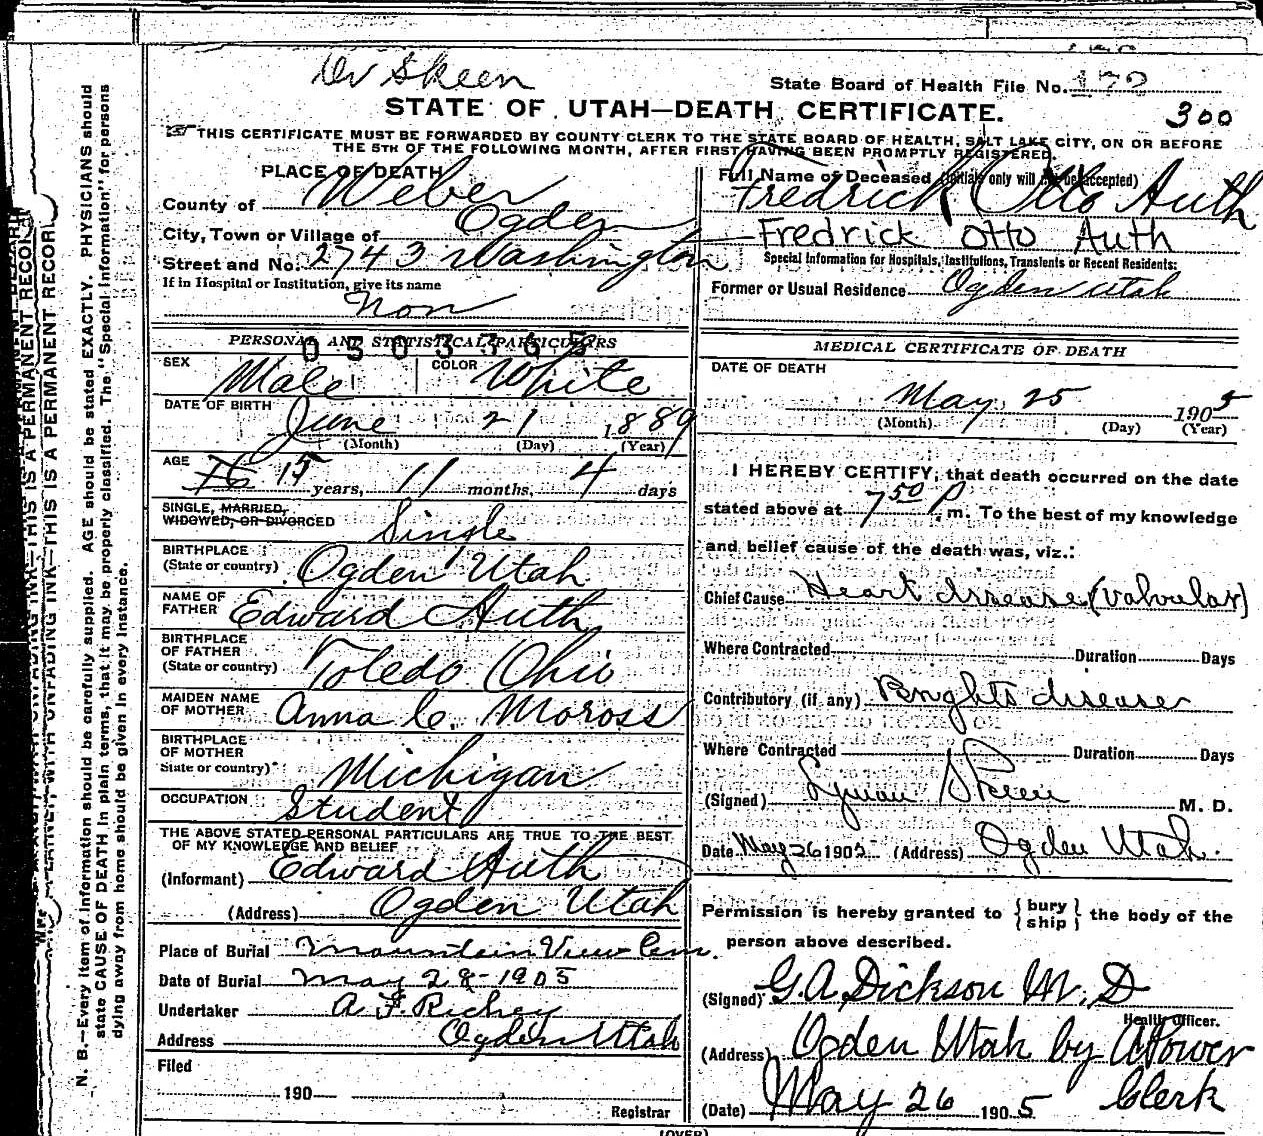 Dr Skeen
State Board of Health File No. 172
STATE OF UTAH—DEATH CERTIFICATE.
300
THIS CERTIFICATE MUST BE FORWARDED BY COUNTY CLERK TO THE STATE BOARD OF HEALTH, SALT LAKE CITY, ON OR BEFORE
THE 5TH OF THE FOLLOWING MONTH, AFTER FIRST HAVING BEEN PROMPTLY REGISTERED.
PLACE OF DEATH
County of Weber
City, Town or Village of Ogden
Street and No. 2743 Washington
If in Hospital or Institution, give its name
Non
Full Name of Deceased (Initials only will not be accepted)
Fredrick Otto Auth
Fredrick Otto Auth
Special Information for Hospitals, Institutions, Transients or Recent Residents:
Former or Usual Residence Ogden Utah
PERSONAL AND STATISTICAL PARTICULARS
0503365
SEX Male COLOR White
DATE OF BIRTH June 21 1889
(Month) (Day) (Year)
AGE 76 15 years, 11 months, 4 days
SINGLE, MARRIED,
WIDOWED, OR DIVORCED Single
BIRTHPLACE
(State or country) Ogden Utah
NAME OF
FATHER Edward Auth
BIRTHPLACE
OF FATHER
(State or country) Toledo Ohio
MAIDEN NAME
OF MOTHER Anna C. Moross
BIRTHPLACE
OF MOTHER
State or country) Michigan
OCCUPATION Student
THE ABOVE STATED PERSONAL PARTICULARS ARE TRUE TO THE BEST
OF MY KNOWLEDGE AND BELIEF
(Informant) Edward Auth
(Address) Ogden Utah
Place of Burial Mountain View Cem.
Date of Burial May 28-1905
Undertaker A. F. Richey
Address Ogden Utah
Filed
190
Registrar
MEDICAL CERTIFICATE OF DEATH
DATE OF DEATH
May 25 1905
(Month) (Day) (Year)
I HEREBY CERTIFY, that death occurred on the date
stated above at 7 50 P. m. To the best of my knowledge
and belief cause of the death was, viz.:
Chief Cause Heart disease (Valvular)
Where Contracted Duration Days
Contributory (if any) Brights disease
Where Contracted Duration Days
(Signed) Lyman Skeen M. D.
Date May 26 1905 (Address) Ogden Utah.
Permission is hereby granted to {bury ship} the body of the
person above described.
(Signed) G. A. Dickson M. D
Health Officer.
(Address) Ogden Utah by A Power
Clerk
(Date) May 26 1905
(OVER)
N. B.—Every item of information should be carefully supplied. AGE should be stated EXACTLY. PHYSICIANS should
state CAUSE OF DEATH in plain terms, that it may be properly classified. The "Special Information" for persons
dying away from home should be given in every instance.
WITH UNFADING INK—THIS IS A PERMANENT RECORD.